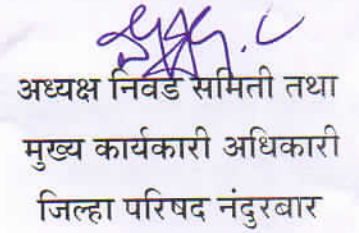 अध्यक्ष निवड समिती तथा
मुख्य कार्यकारी अधिकारी
जिल्हा परिषद नंदुरबार